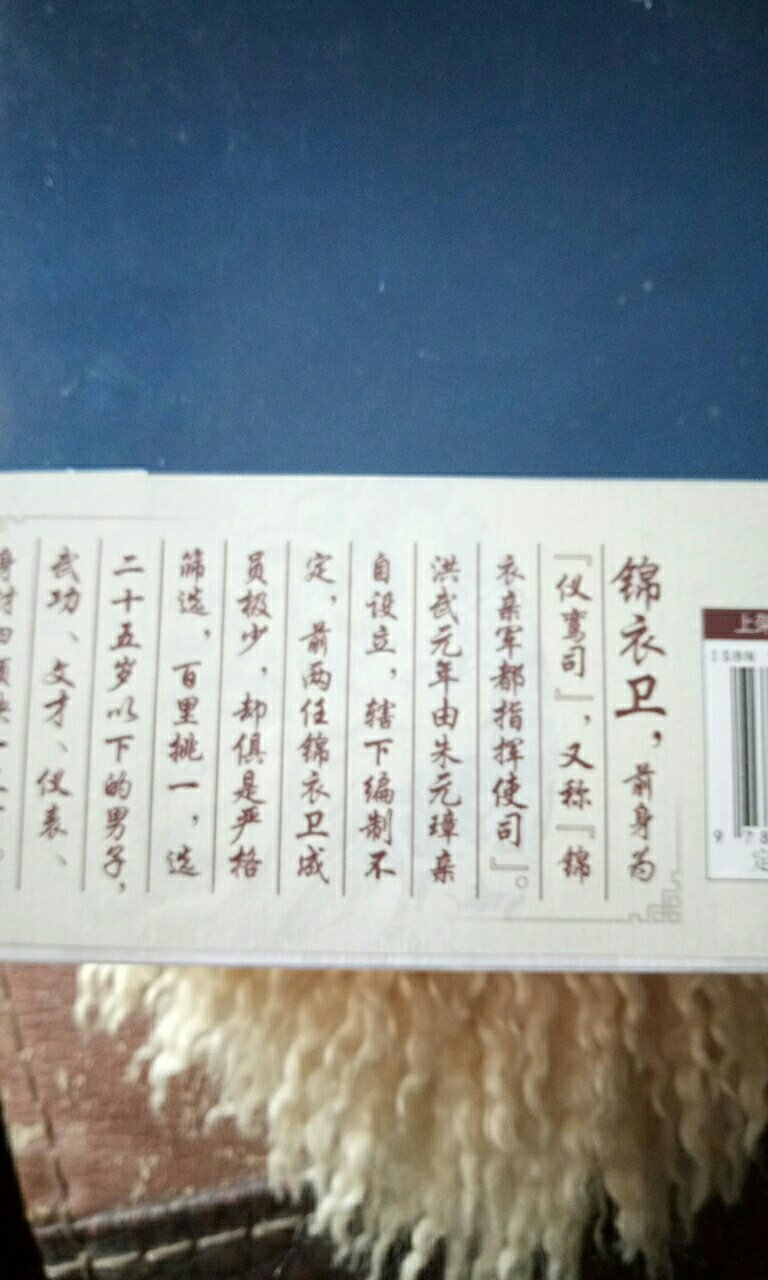 锦衣卫，前身为
『仪鸾司』，又称『锦
衣亲军都指挥使司』。
洪武元年由朱元璋亲
自设立，辖下编制不
定，前两任锦衣卫成
员极少，却俱是严格
筛选，百里挑一，选
二十五岁以下的男子，
武功、文才、仪表、
身材四项
上架
ISBN
9 78
定